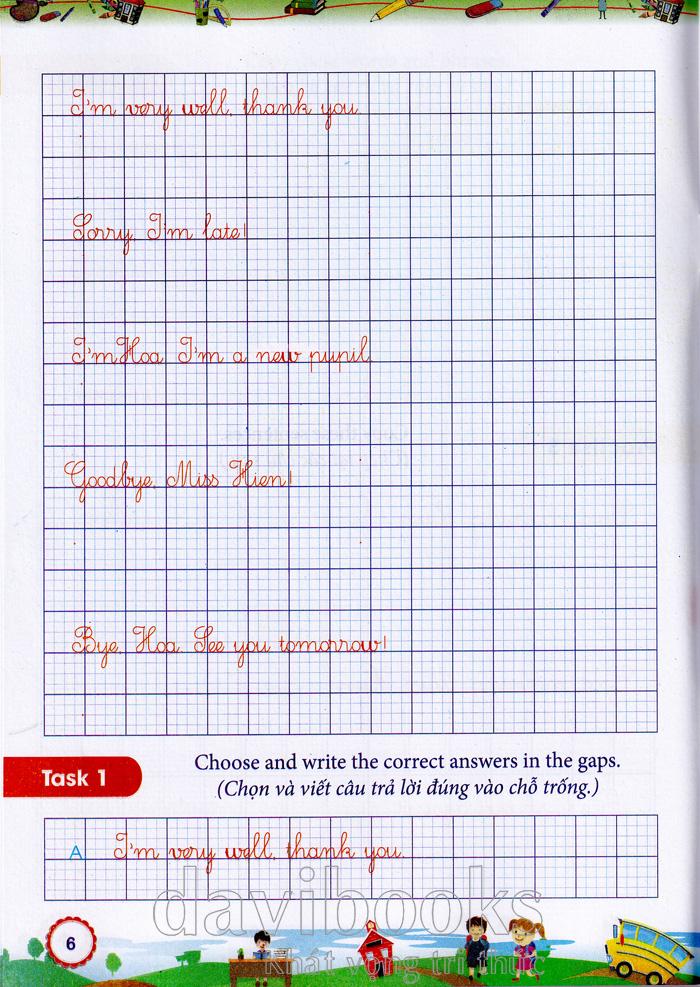 I'm very well, thank you.
Sorry, I'm late!
I'm Hoa. I'm a new pupil.
Goodbye, Miss Hien!
Bye, Hoa. See you tomorrow!
Task 1
Choose and write the correct answers in the gaps.
(Chọn và viết câu trả lời đúng vào chỗ trống.)
A. I'm very well, thank you.
davibooks
Khát vọng tri thức
6